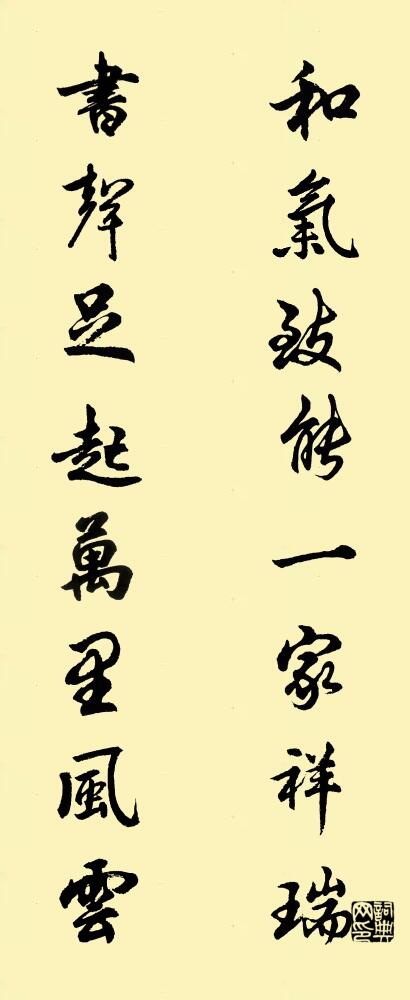 和氣致能一家祥瑞
書聲足起萬里風雲
詞典
网印